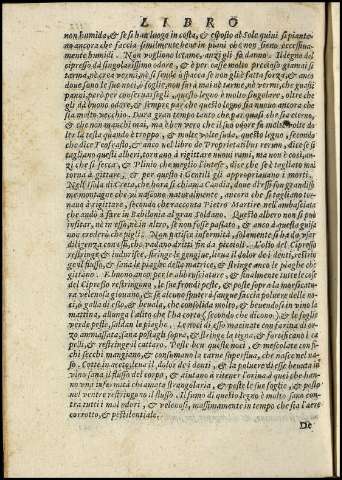 LIBRO
non humido, & se si ha luogo in costa, & esposto al Sole quini si pianto-
no ancora che faccia similmente bene in piani che non sieno eccessiua-
mente humidi. Non vogliono letame, anzi gli fa danno. Il legno del
cipresso dà singolarissimo odore, & è per casse molto precioso giamai si
tarma, nè crea vermi, nè si fende o spacca se non gli è fatta forza, & anco
doue sono le sue noci, o foglie, non si ria mai nè tarme, nè vermi, che guasti
panni, però per conseruar fogli, questo legno è molto singolare, oltre che
gli dà buono odore, & sempre par che questo legno sia nuouo ancora che
sia molto vecchio. Dura gran tempo tanto che par quasi che sia eterno,
& che non manchi mai, ma è ben vero che il suo odore fa molto mole do
ler la testa quando è troppo, & molte volte suda, questo legno, secondo
che dice Teofrasto, & anco nel libro de Proprietatibus rerum, dice se si
tagliano quelli alberi, tornano a rigittare nuoui rami, ma non è così, an-
zi che si secca, & Plinio che meglio l'intese, dice che se è tagliato mai
torna à gittare, & per questo i Gentili gli appropriauano i morti.
Nell'isola di Creta, che hora si chiama Candia, doue di essi son grandissi-
me montagne che vi nascono naturalmente, ancora che si taglino tor-
nano à rigittare, secondo che racconta Pietro Martire nell'ambasciata
che andò à fare in Babilonia al gran Soldano. Questo albero non si può
insitar, nè in esso, nè in altro, & non fosse passato, & anco à questo guisa
non crederei che pigli. Non patisce la herma, solamente si ha da vser
diligenza con essi, che vadano dritti fin da piccioli. L'olio del Cipresso
restringe & indurisce, stringe le gengiue, leua il dolor dei denti, restrin-
ge il flusso, & sana le piaghe della matrice, & stringe anco le piaghe che
gittano. E buono anco per le abbrusciature, & similmente tutte le cose
del Cipresso restringono, le sue frondi peste, & poste sopra la morsicatura
velenosa giouano, & se alcuno sputerà sangue faccia poluere delle no-
ci, o galla di esso, & beuendo, che consolida molto, & beuendosi in vino la
mattina, allunga l'alito che l'ha corto (secondo che dicono.) & le foglie
verde peste, saldan le piaghe. Le noci di esso macinate con farina di or-
zo ammassata, sana postagli sopra, & stringe la tigna, & fortificano i ca-
pelli, & restringe il cattaro. Peste ben queste noci, & mescolate con fi-
chi secchi mangiano, & consumano la carne superflua, che nasce nel na-
so. Cotte in aceto, leua il dolor dei denti, & la poluere di esse beuuta in
vino sana il flusso del corpo, & aiutano à ritener l'orina à quei che han-
no vna infermità chiamata strangolaria, & peste le sue foglie, & posto
nel ventre restringono il flusso. Il fumo di questo legno è molto sano con-
tra tutti i mal odori, & velenosi, massimamente in tempo che sia l'aere
corrotto, & pestilentiale.
De